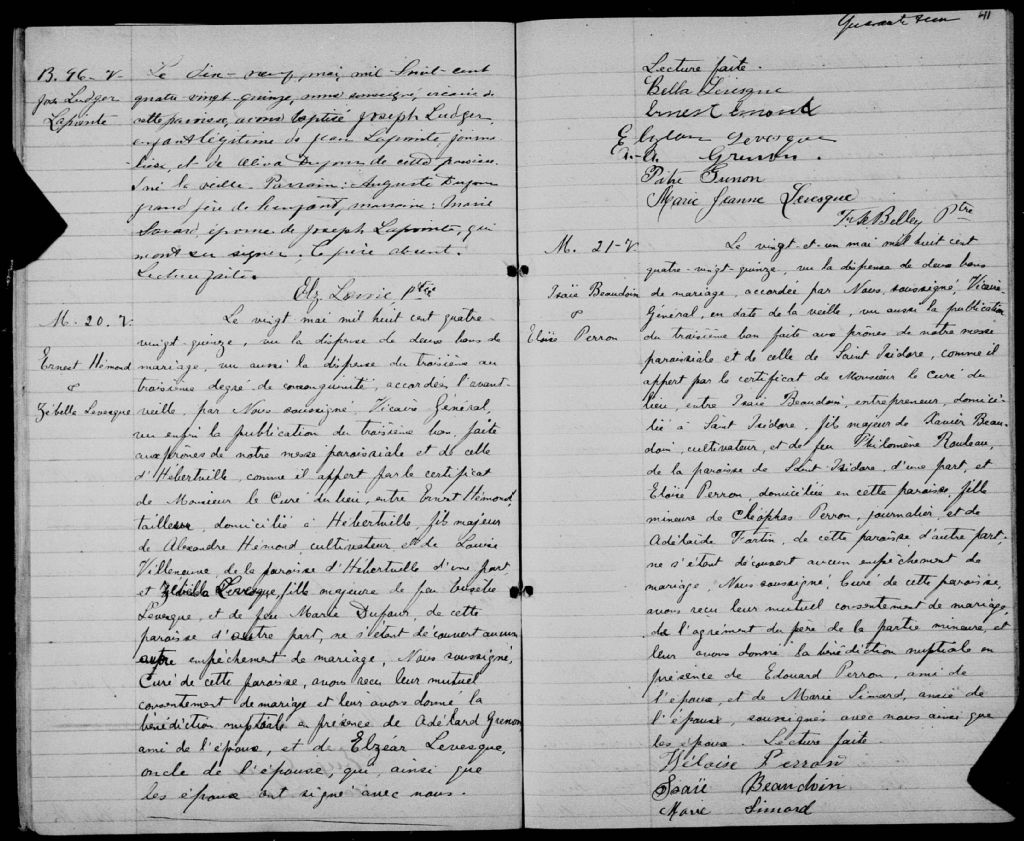 B. 96. V.
Jos. Ludger
Lapointe
Le dix-neuf mai mil huit cent
quatre-vingt quinze, nous soussigné, vicaire de
cette paroisse, avons baptisé Joseph Ludger,
enfant légitime de Jean Lapointe, journa-
lier, et de Oliva Dufour de cette paroisse.
Né la veille. Parrain: Auguste Dufour
grand père de l'enfant, marraine: Marie
Savard, épouse de Joseph Lapointe, qui
n'ont su signer. Le père absent.
Lecture faite.
Elz. Ptre
M. 20. V.
Ernest Hémond
&
Zébella Levesque
Le vingt mai mil huit cent quatre-
vingt-quinze, vu la dispense de deux bans de
mariage, vu aussi la dispense du troisième au
troisième degré de consanguinité, accordées l'avant-
veille, par Nous soussigné, Vicaire Général,
vu enfin la publication du troisième ban, faite
aux prônes de notre messe paroissiale et de celle
d'Hébertville, comme il appert par le certificat
de Monsieur le Curé du lieu, entre Ernest Hémond,
tailleur, domicilié à Hébertville, fils majeur
de Alexandre Hémond, cultivateur, et de Louise
Villeneuve, de la paroisse d'Hébertville d'une part,
et Zébella Levesque, fille majeure de feu
Levesque, et de feu Marie Dufour, de cette
paroisse d'autre part, ne s'étant découvert aucun
autre empêchement de mariage, Nous soussigné,
Curé de cette paroisse, avons reçu leur mutuel
consentement de mariage et leur avons donné la
bénédiction nuptiale en présence de Adélard Grenon
ami de l'époux, et de Elzéar Levesque,
oncle de l'épouse, qui, ainsi que
les époux ont signé avec nous.
Quarante et un 41
Lecture faite.
Bella Levesque
Ernest Emond
Levesque
Grenon.
Marie Jeanne Levesque
Ptre
M. 21-V.
Isaïe Beaudoin
&
Eloïse Perron
Le vingt-et-un mai mil huit cent
quatre-vingt-quinze, vu la dispense de deux bans
de mariage, accordée par Nous, soussigné, Vicaire
Général, en date de la veille, vu aussi la publication
du troisième ban faite aux prônes de notre messe
paroissiale et de celle de Saint Isidore, comme il
appert par le certificat de Monsieur le Curé du
lieu, entre Isaïe Beaudoin, entrepreneur, domici-
lié à Saint Isidore, fils majeur de Xavier Beau-
doin, cultivateur, et de feu Philomène Rouleau,
de la paroisse de Saint Isidore, d'une part, et
Eloïse Perron, domiciliée en cette paroisse, fille
mineure de Cléophas Perron, journalier, et de
Adélaïde Fortin, de cette paroisse d'autre part,
ne s'étant découvert aucun empêchement de
mariage, Nous soussigné, Curé de cette paroisse,
avons reçu leur mutuel consentement de mariage,
de l'agrément du père de la partie mineure, et
leur avons donné la bénédiction nuptiale en
présence de Edouard Perron, ami de
l'époux, et de Marie Simard, amie de
l'épouse, soussignés avec nous ainsi que
les époux. Lecture faite.
Héloïse Perron
Isaïe Beaudoin
Marie Simard